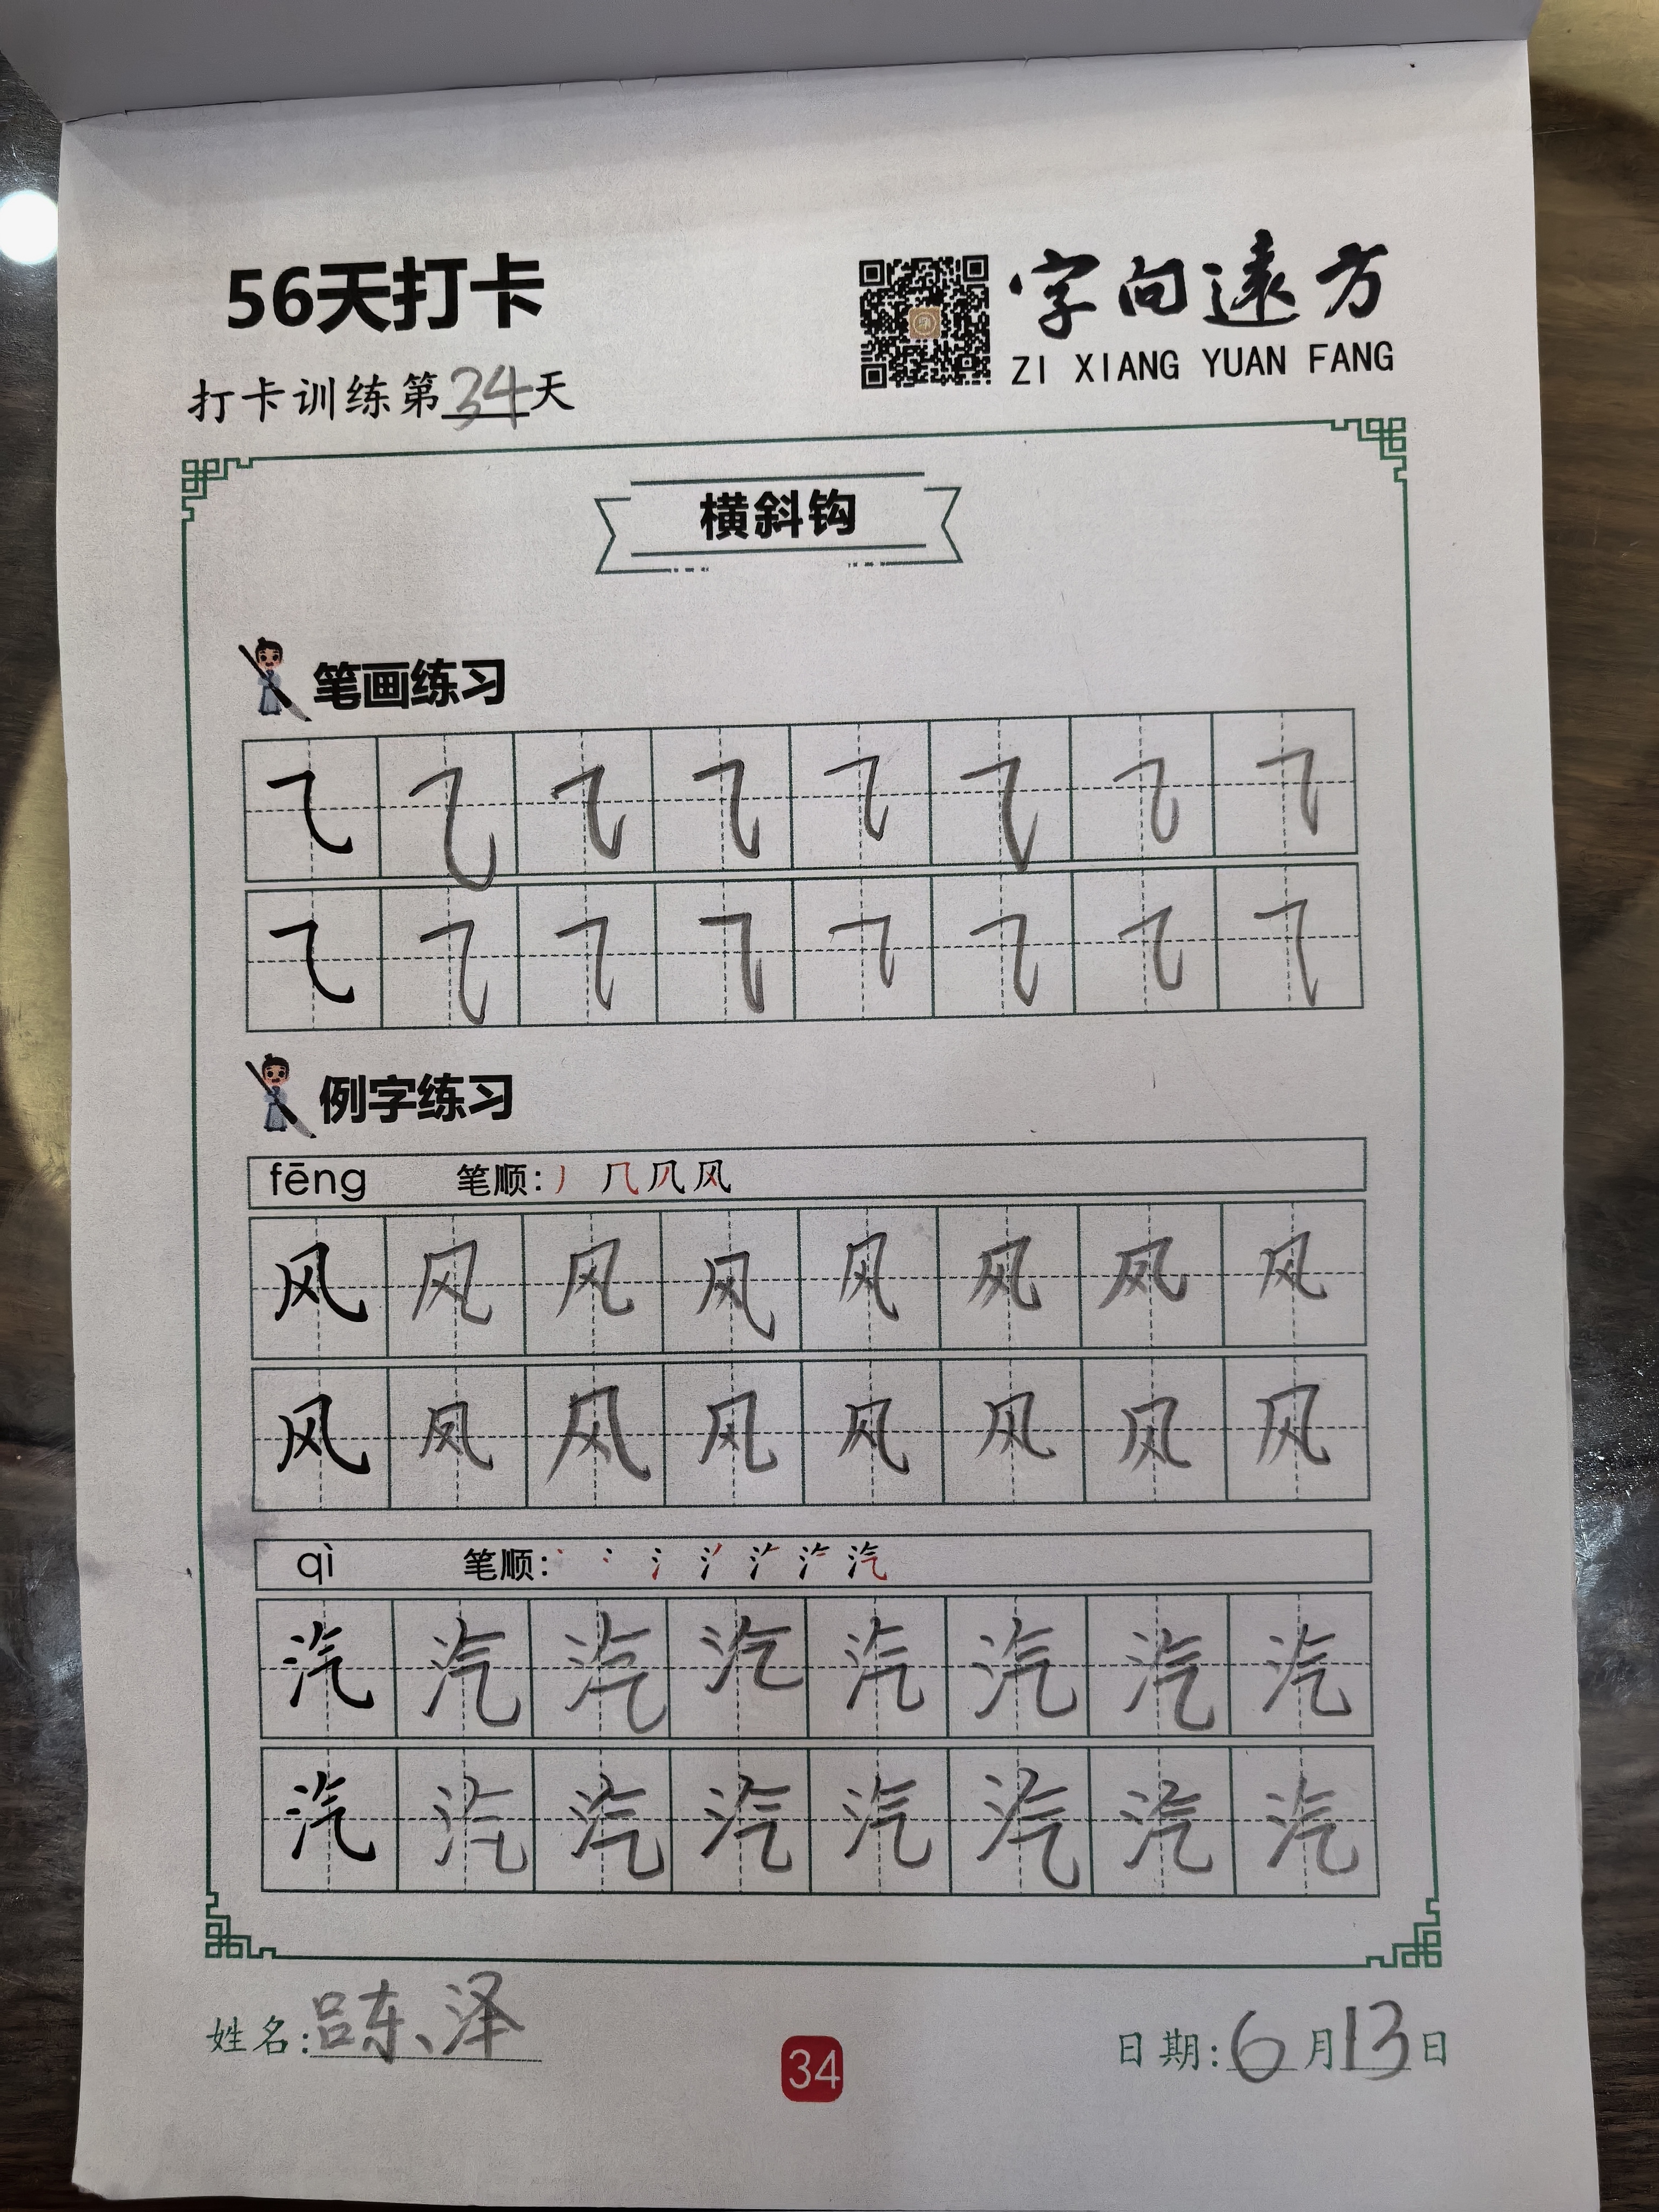 56天打卡
字向遠方
ZI XIANG YUAN FANG
打卡训练第34天
横斜钩
笔画练习
㇈ ㇈ ㇈ ㇈ ㇈ ㇈ ㇈ ㇈
㇈ ㇈ ㇈ ㇈ ㇈ ㇈ ㇈ ㇈
例字练习
fēng 笔顺: 丿 几 风
风 风 风 风 风 风 风 风
风 风 风 风 风 风 风 风
qì 笔顺: 丶 冫 氵 汽
汽 汽 汽 汽 汽 汽 汽 汽
汽 汽 汽 汽 汽 汽 汽 汽
姓名: 吕东泽
34
日期: 6月13日